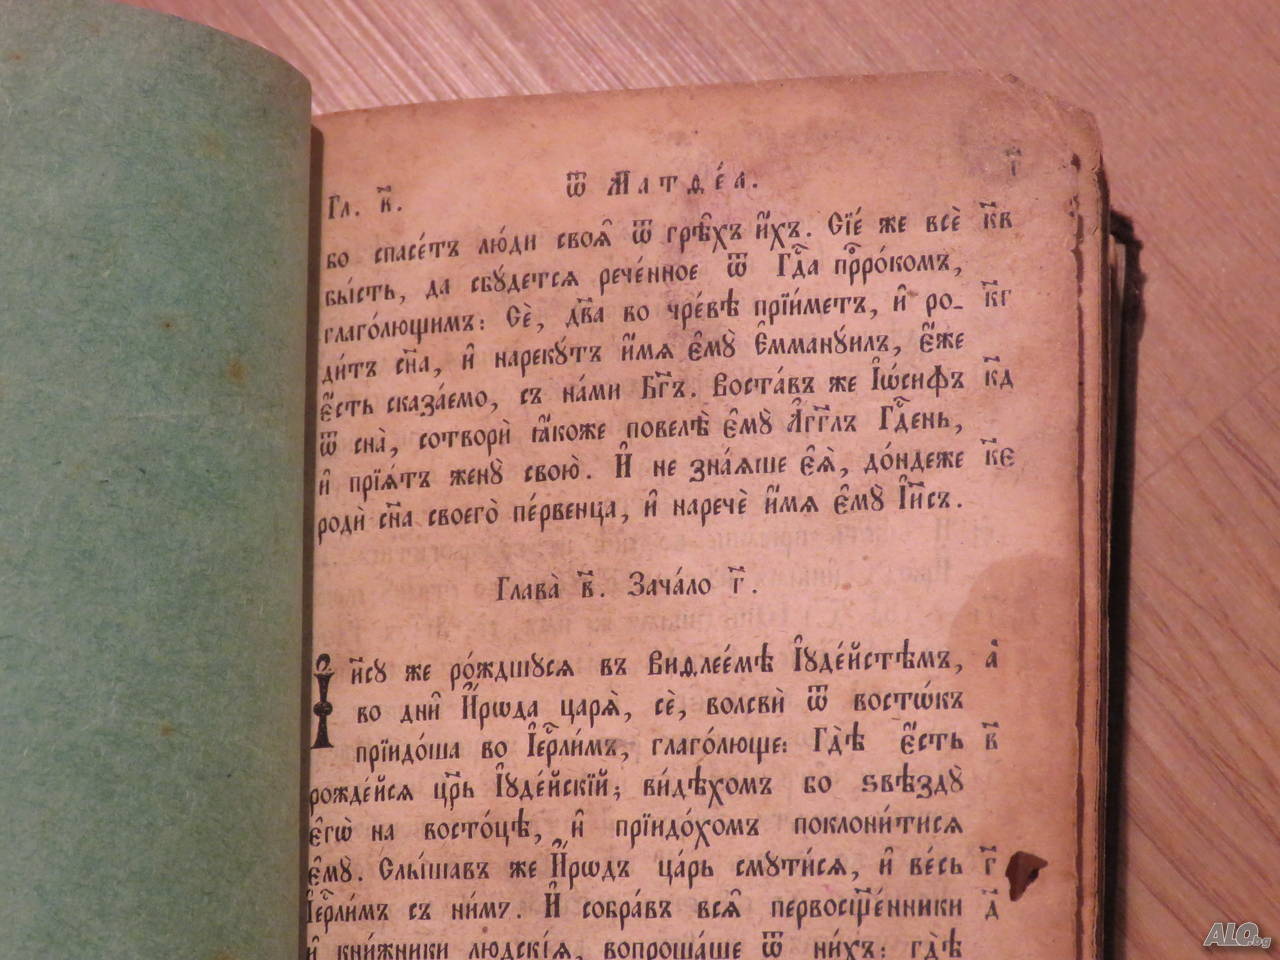 Гл. в҃. Ѿ Матѳе́а. г҃
бо спасе́тъ лю́ди своѧ̑ ѿ грѣ̑хъ и҆́хъ. Сїе́ же всѐ к҃в
бы́сть, да сбꙋ́детсѧ рече́нное ѿ Гдⷭ҇а прⷪ҇ро́комъ,
глаго́лющимъ: Сѐ, дв҃а во чре́вѣ прїи́метъ, и҆ ро- к҃г
ди́тъ сн҃а, и҆ нарекꙋ́тъ и҆́мѧ є҆мꙋ̀ Є҆мманꙋи́лъ, є҆́же
є҆́сть сказа́емо, съ на́ми Бг҃ъ. Воста́въ же І҆ѡ́сифъ к҃д
ѿ сна̀, сотворѝ ꙗ҆́коже повелѣ̀ є҆мꙋ̀ А҆́гг҃лъ Гдⷭ҇ень,
и҆ прїѧ́тъ женꙋ̀ свою̀. И҆ не зна́ѧше є҆ѧ̀, до́ндеже к҃є
родѝ сн҃а своего̀ пе́рвенца, и҆ наречѐ и҆́мѧ є҆мꙋ̀ І҆и҃съ.
Глава̀ в҃. Зача́ло г҃.
І҆и҃сꙋ же ро́ждшꙋсѧ въ Виѳлее́мѣ І҆ꙋде́йстѣмъ, а҃
во дни̑ И҆́рѡда царѧ̀, сѐ, волсвѝ ѿ восто̑къ
прїидо́ша во І҆ерⷭ҇ли́мъ, глаго́люще: Гдѣ̀ є҆́сть в҃
рожде́йсѧ цр҃ь І҆ꙋде́йскїй; ви́дѣхомъ бо ѕвѣздꙋ̀
є҆гѡ̀ на восто́цѣ, и҆ прїидо́хомъ поклони́тисѧ
є҆мꙋ̀. Слы́шавъ же И҆́рѡдъ ца́рь смꙋти́сѧ, и҆ ве́сь г҃
І҆ерⷭ҇ли́мъ съ ни́мъ. И҆ собра́въ всѧ̑ первосщ҃е́нники д҃
и҆ кни́жники людскі́ѧ, вопроша́ше ѿ ни́хъ: гдѣ̀
ALO.bg